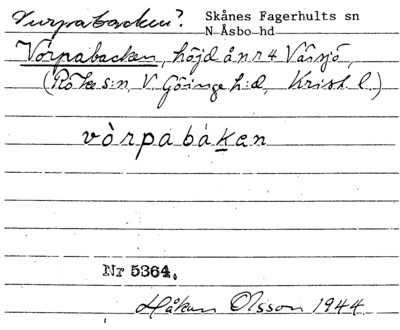 Vurpabacken? Skånes Fagerhults sn
N Åsbo hd
Vòrpabacken, höjd å nr 4 Vårsjö,
(Röke s:n, V. Göinge h:d, Krist. l.)
vòrpabáken
Nr 5364.
Håkan Olsson 1944